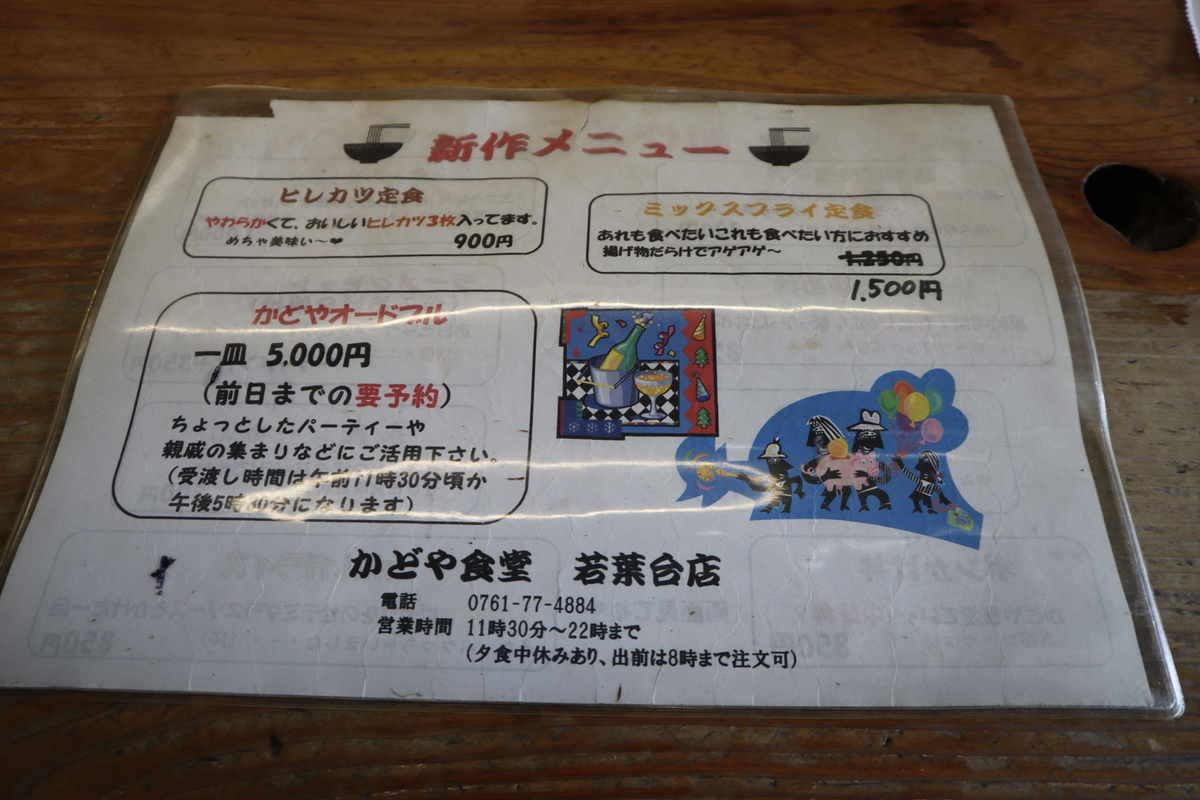 新作メニュー
ヒレカツ定食
やわらかくて、おいしいヒレカツ3枚入ってます。
めちゃ美味い～♥ 900円
ミックスフライ定食
あれも食べたいこれも食べたい方におすすめ
揚げ物だらけでアゲアゲ～ 1,250円
1,500円
かどやオードブル
一皿 5,000円
(前日までの要予約)
ちょっとしたパーティーや
親戚の集まりなどにご活用下さい。
(受渡し時間は午前11時30分頃か
午後5時30分になります)
かどや食堂 若葉台店
電話 0761-77-4884
営業時間 11時30分～22時まで
(夕食中休みあり、出前は8時まで注文可)